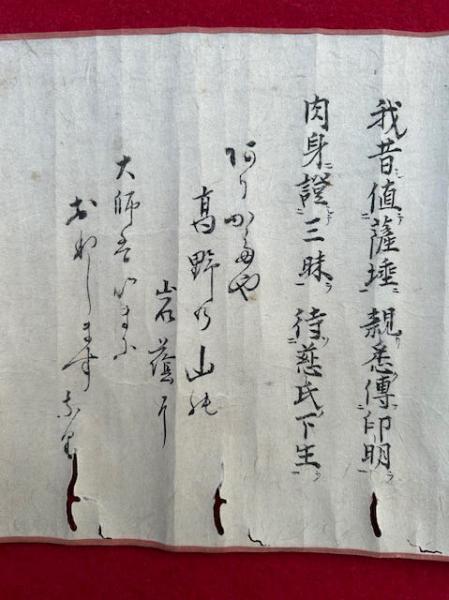 我昔値薩埵 親悉傳印明
肉身證三昧 待慈氏下生
阿りか多や
高野乃山能
岩蔭尓
大師者いまた
おわします奈る